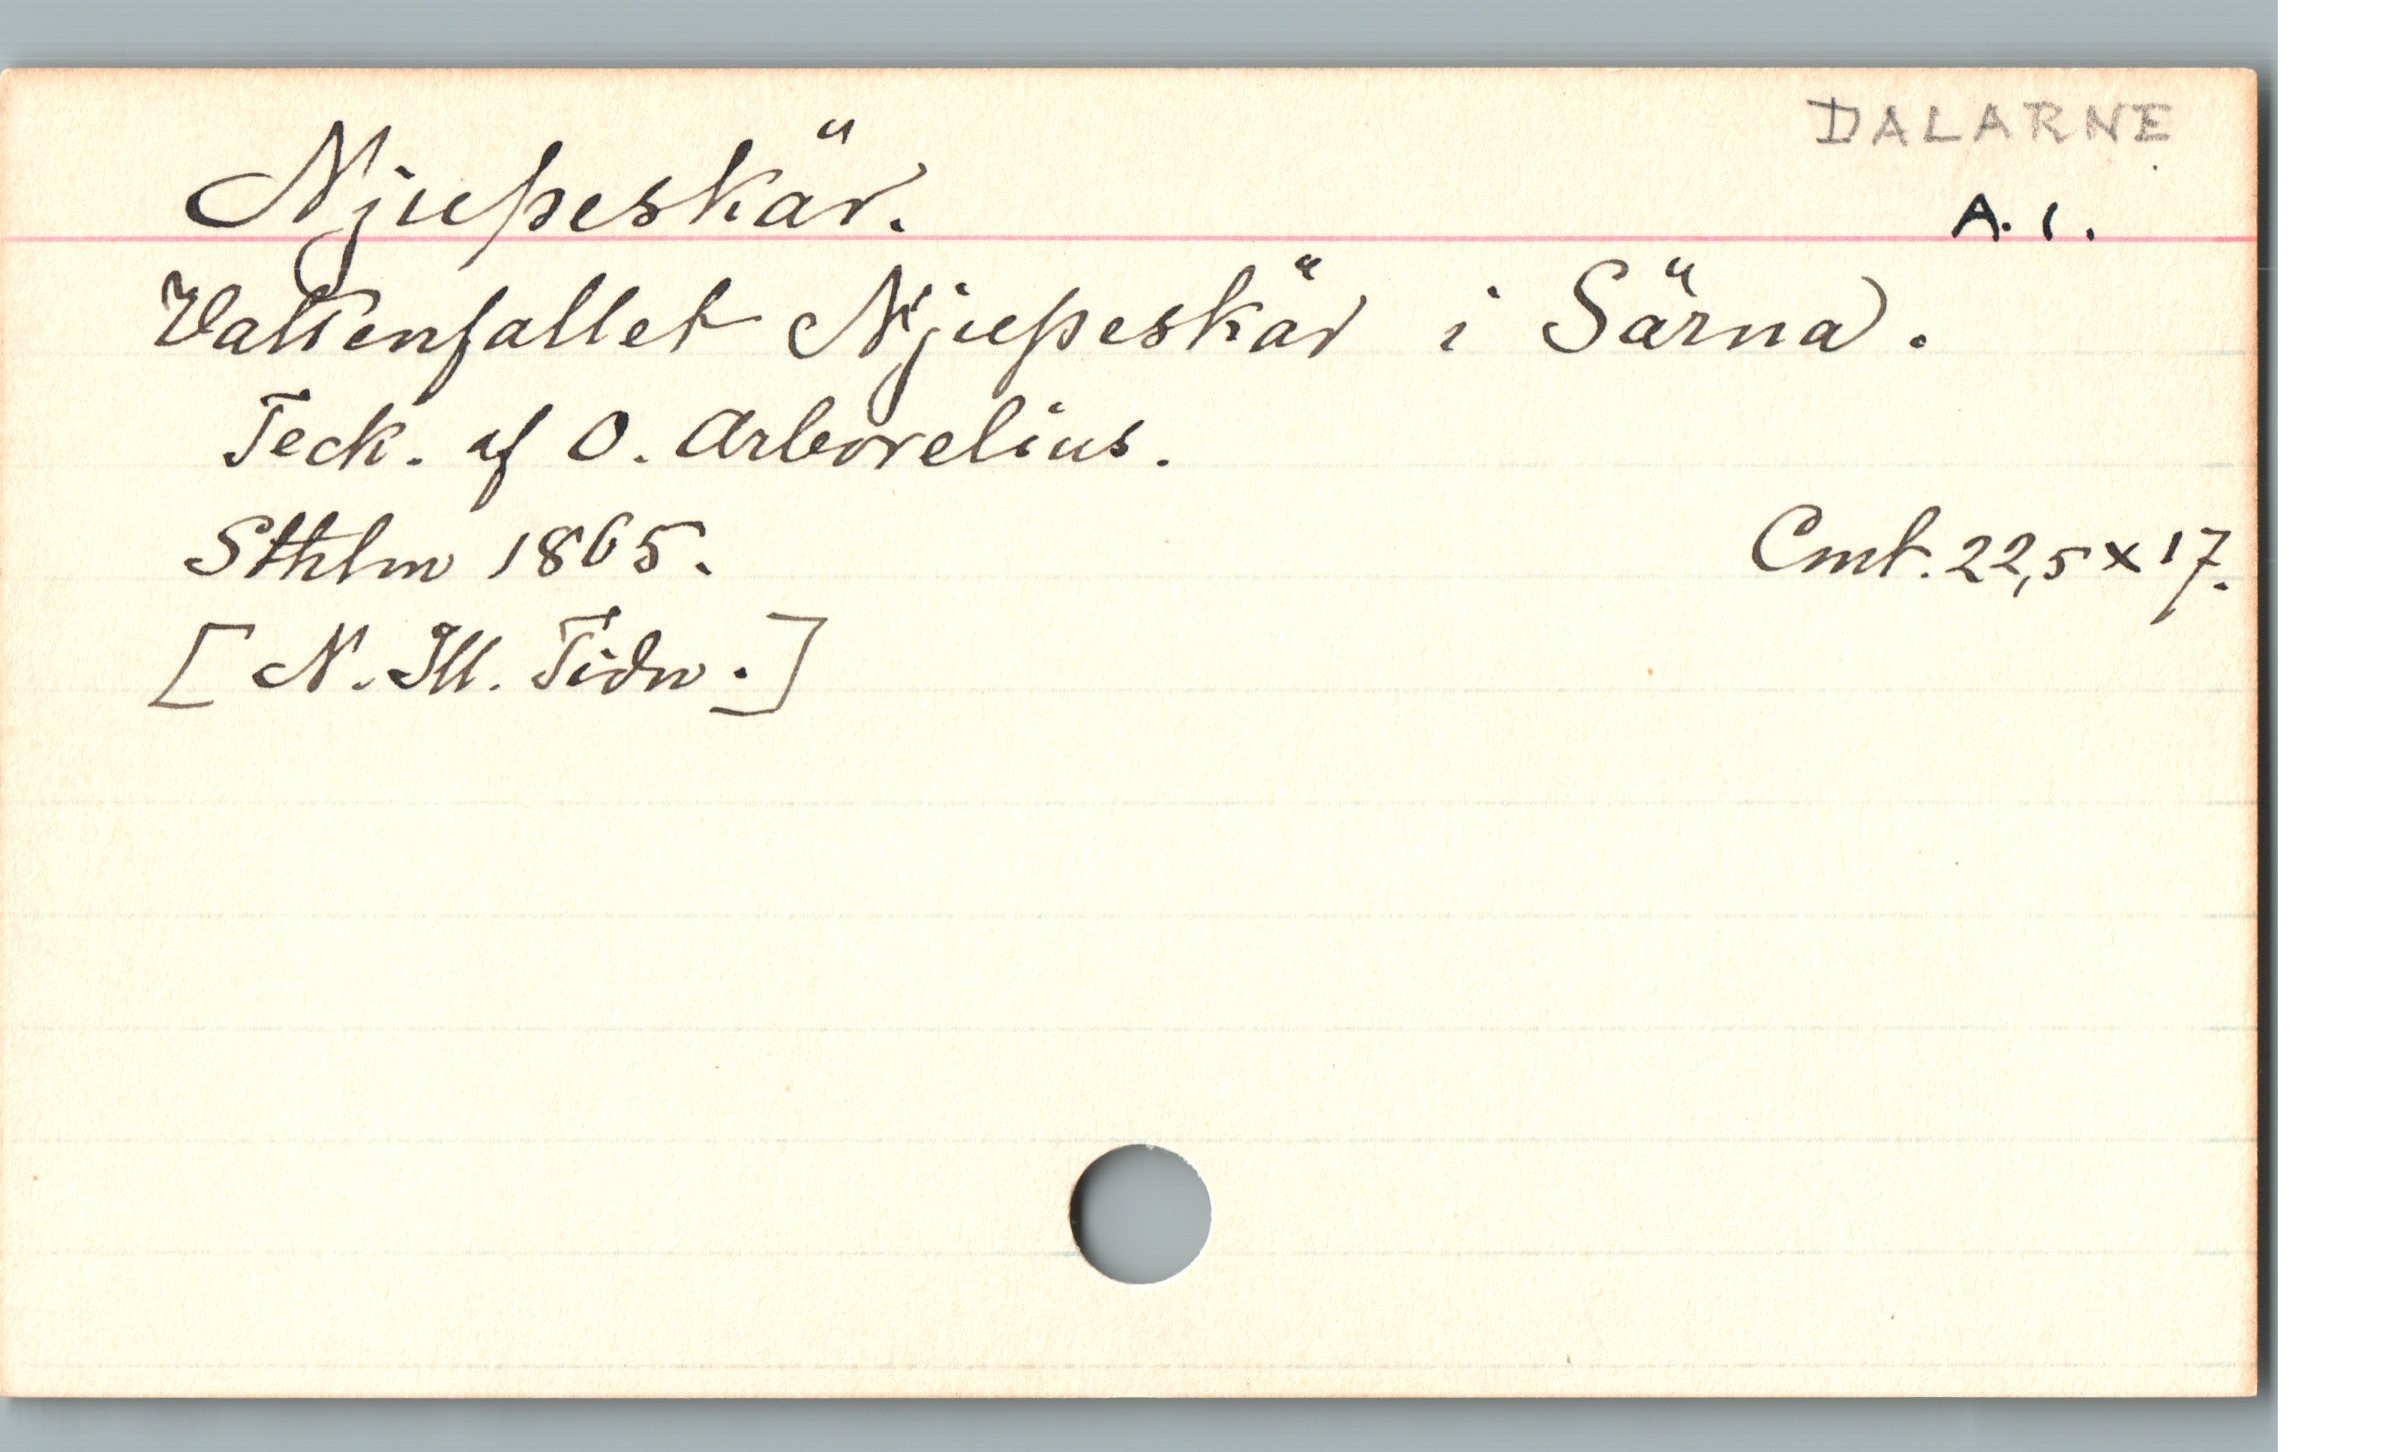 DALARNE
Njupeskär.
A. 1.
Vattenfallet Njupeskär i Särna.
Teck. af O. Arborelius.
Sthlm 1865.
Cmt. 22,5 x 17.
[N. Ill. Tidn.]